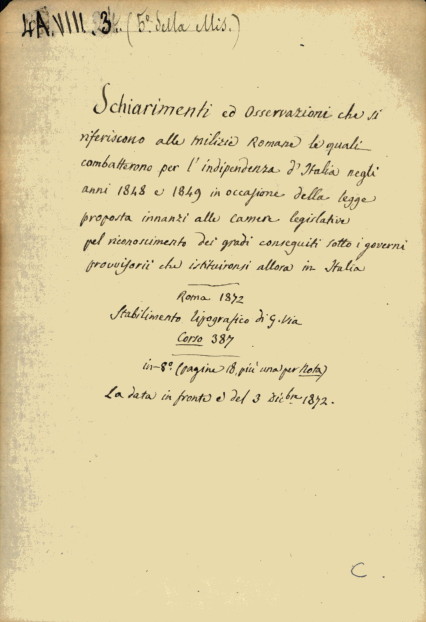 4A.VIII.3. (5.º della Mis.)
Schiarimenti ed Osservazioni che si
riferiscono alle milizie Romane le quali
combatterono per l'indipendenza d'Italia negli
anni 1848 e 1849 in occasione della legge
proposta innanzi alle camere legislative
pel riconoscimento dei gradi conseguiti sotto i governi
provvisorii che istituironsi allora in Italia
Roma 1872
Stabilimento tipografico di G. Via
Corso 387
in-8.º (pagine 18, più una per Nota)
La data in fronte è del 3 Dicbre 1872.
C